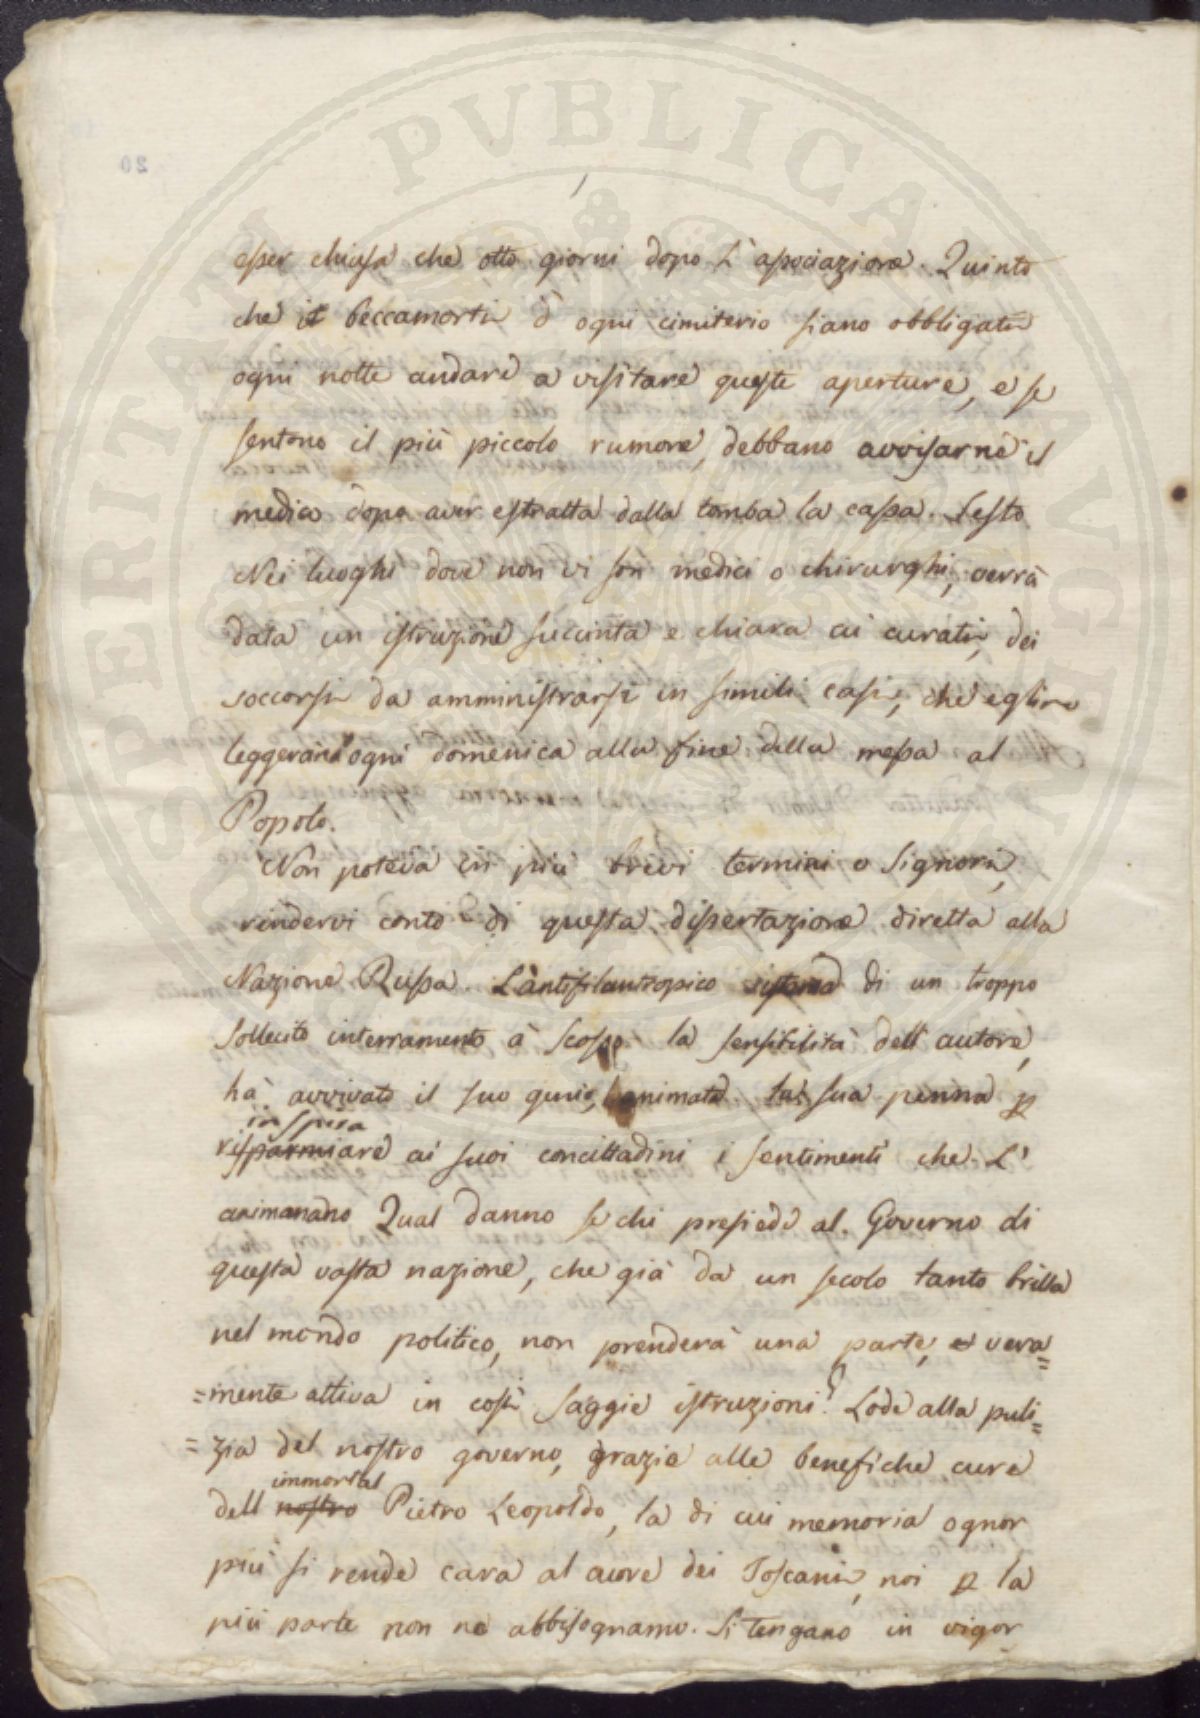 esser chiusa che otto giorni dopo L'associazione. Quinto
che i beccamorti d ogni cimiterio siano obbligati
ogni notte andare a visitare queste aperture, e se
sentono il più piccolo rumore, debbano avvisarne il
medico dopo aver estratta dalla tomba la cassa. Sesto
Nei luoghi dove non vi son medici o chirurghi, verrà
data un istruzione succinta e chiara ai curati, dei
soccorsi da amministrarsi in simili casi, che eglino
leggerano ogni domenica alla fine della messa al
Popolo.
Non poteva in più brevi termini o Signori,
rendervi conto di questa dissertazione diretta alla
Nazione Russa. L'antifilantropico sistema di un troppo
sollecito interramento à scosso la sensibilità dell autore,
hà avvivato il suo genio, animata la sua penna p
inspira
risparmiare ai suoi concittadini i sentimenti che L'
animanano Qual danno se chi presiede al Governo di
questa vasta nazione, che già da un secolo tanto brilla
nel mondo politico, non prenderà una parte, vera=
=mente attiva in così saggie istruzioni? Lode alla puli=
=zia del nostro governo, grazie alle benefiche cure
immortal
dell nostro Pietro Leopoldo, la di cui memoria ognor
più si rende cara al cuore dei Toscani, noi p la
più parte non ne abbisognamo. Si tengano in vigor
20
PROSPERITATI PUBLICAE AUGENDAE